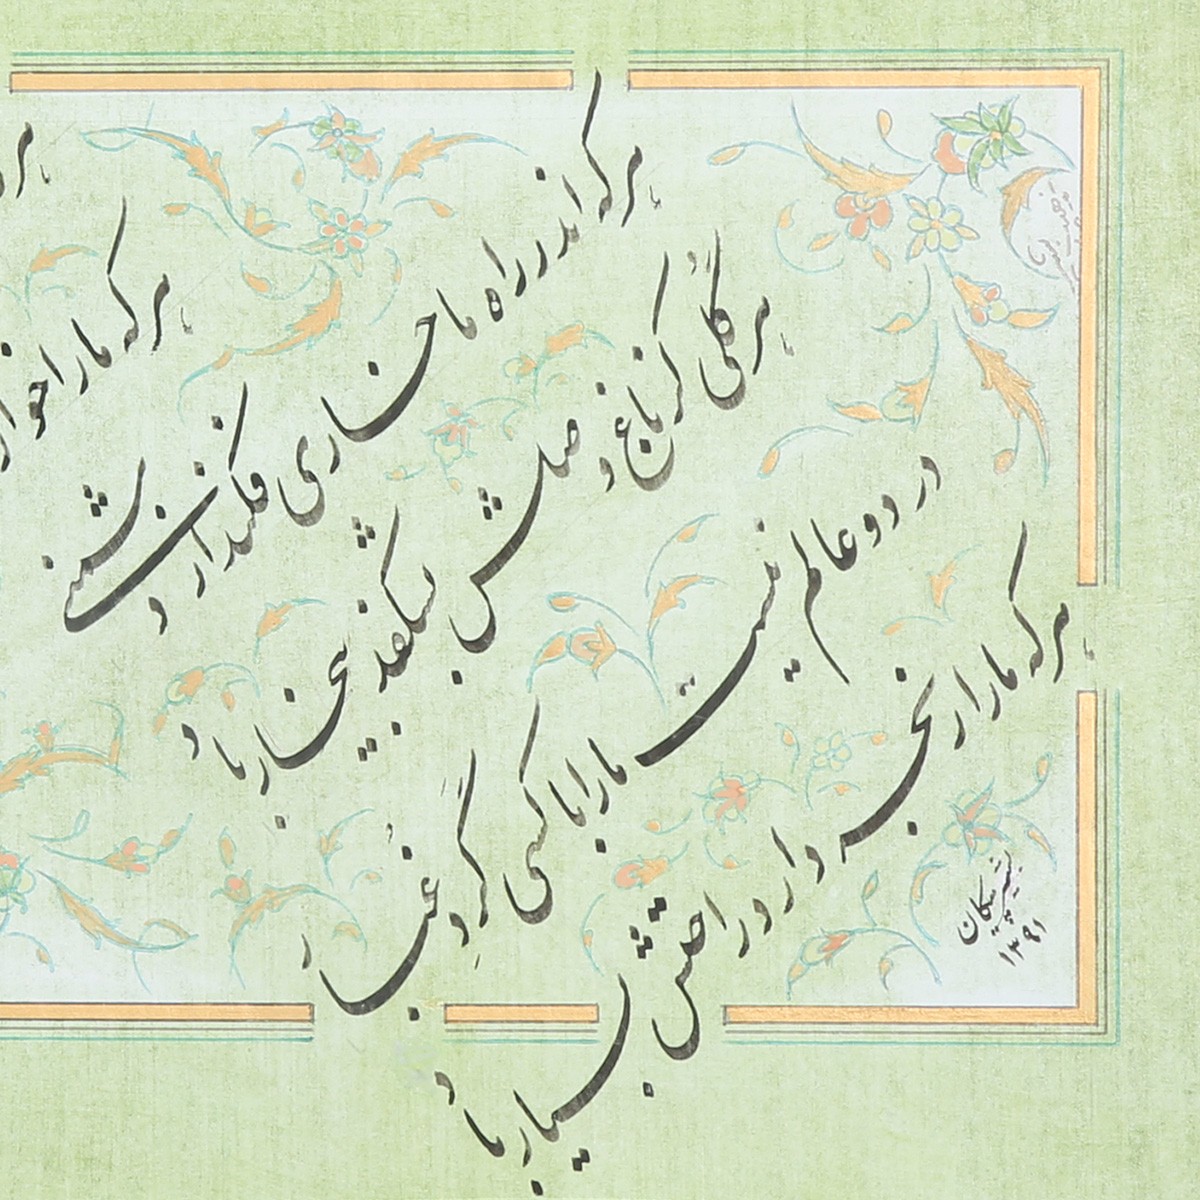 هر که ما را
هر که اندر راه ما خاری فکند از دشمنی
هر گلی کز باغ وصلش بشکفد بیخار باد
در دو عالم نیست ما را با کسی گَرد و غُبار
هر که ما را رنجه دارد راحتش بسیار باد
۱۳۹۱